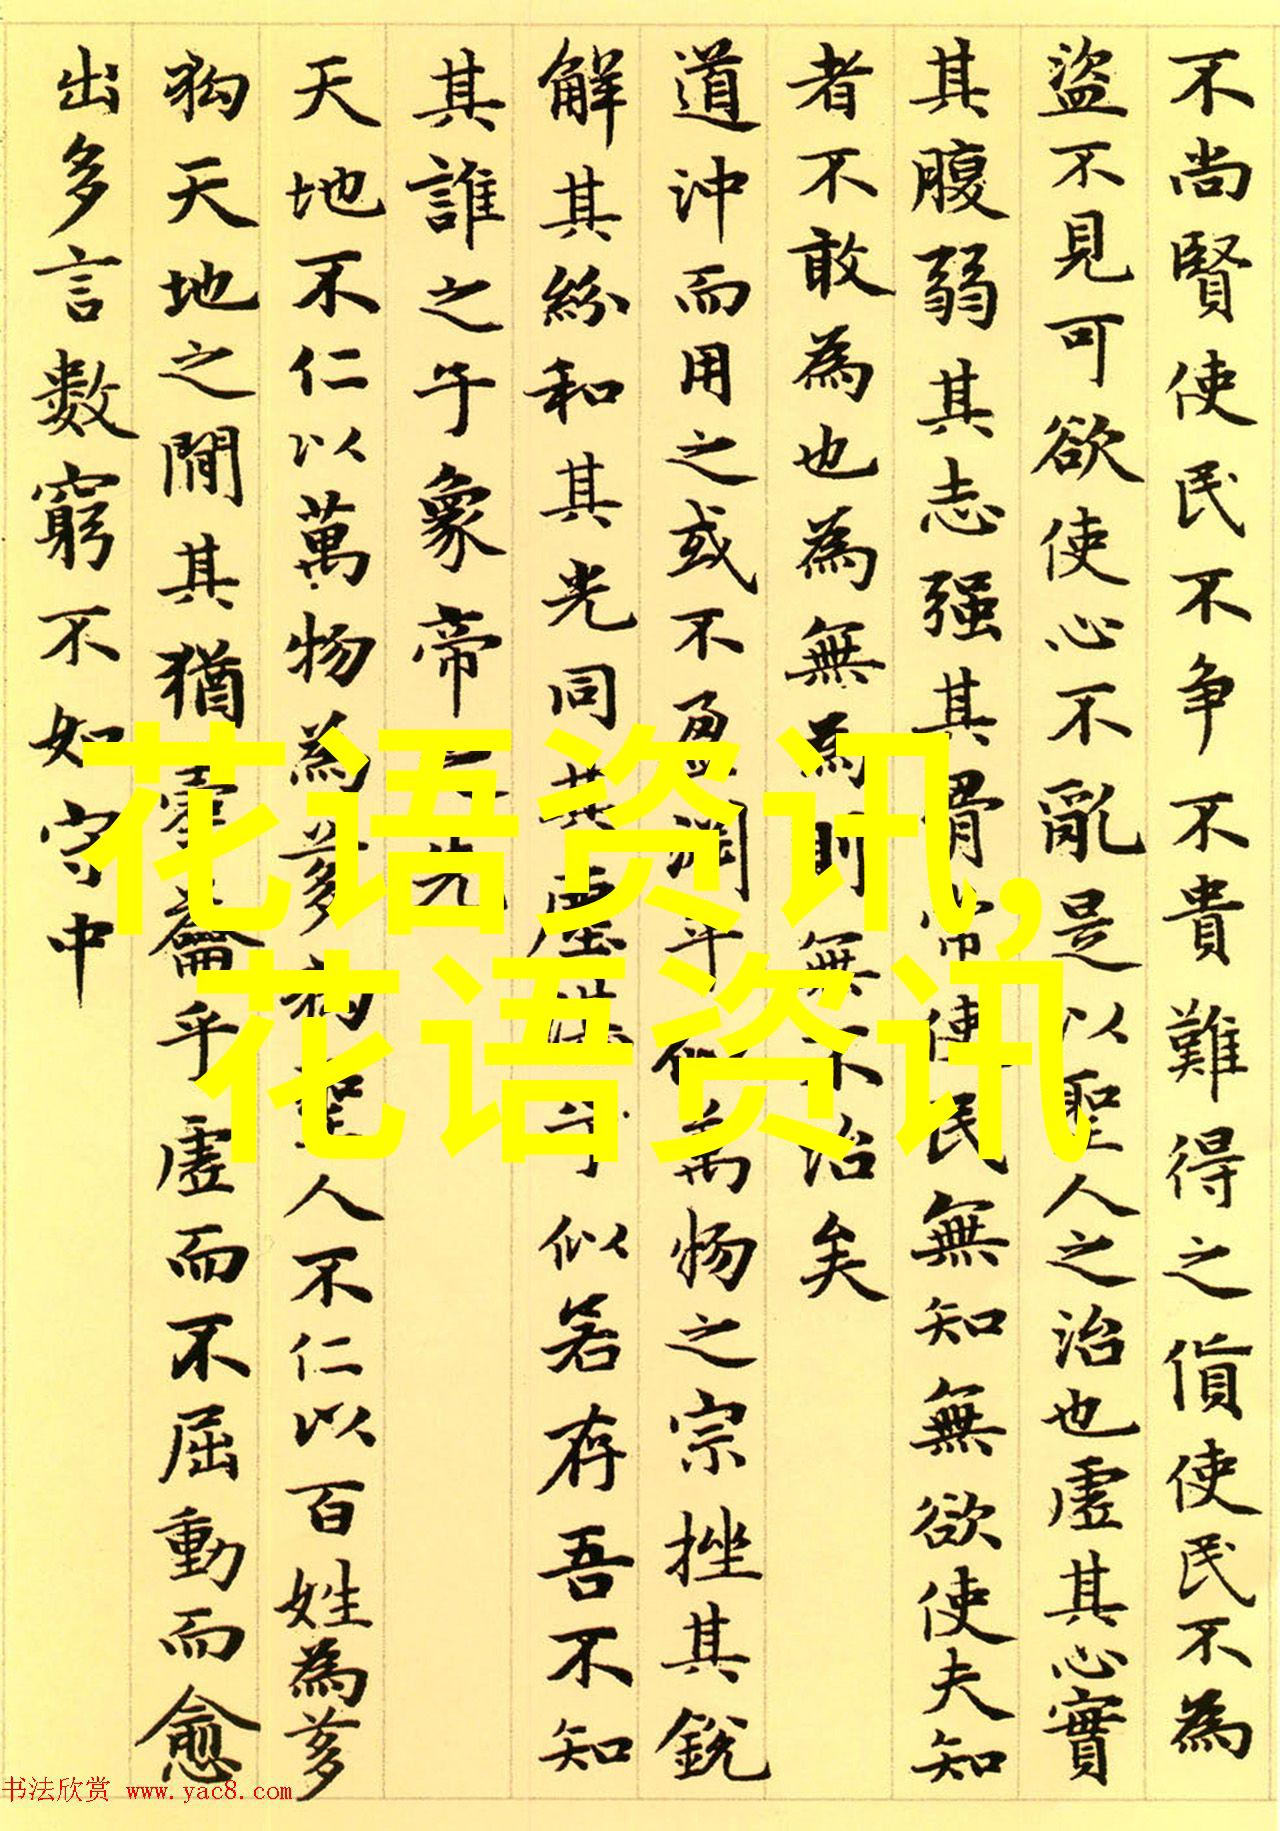 不尚賢使民不争不貴難得之貨使民不為
盜不見可欲使心不亂是以聖人之治也虛其心實
其腹弱其志强其骨常使民無知無欲使夫知
者不敢為也為無為則無不治矣
道沖而用之或不盈淵乎似萬物之宗挫其銳
解其紛和其光同其塵湛乎似若存吾不知
其誰之子象帝之先
天地不仁以萬物為芻狗聖人不仁以百姓為芻
狗天地之間其猶橐籥乎虛而不屈動而愈
出多言數窮不如守中
花语资讯,
花语资讯
书法欣赏 www.yac8.com